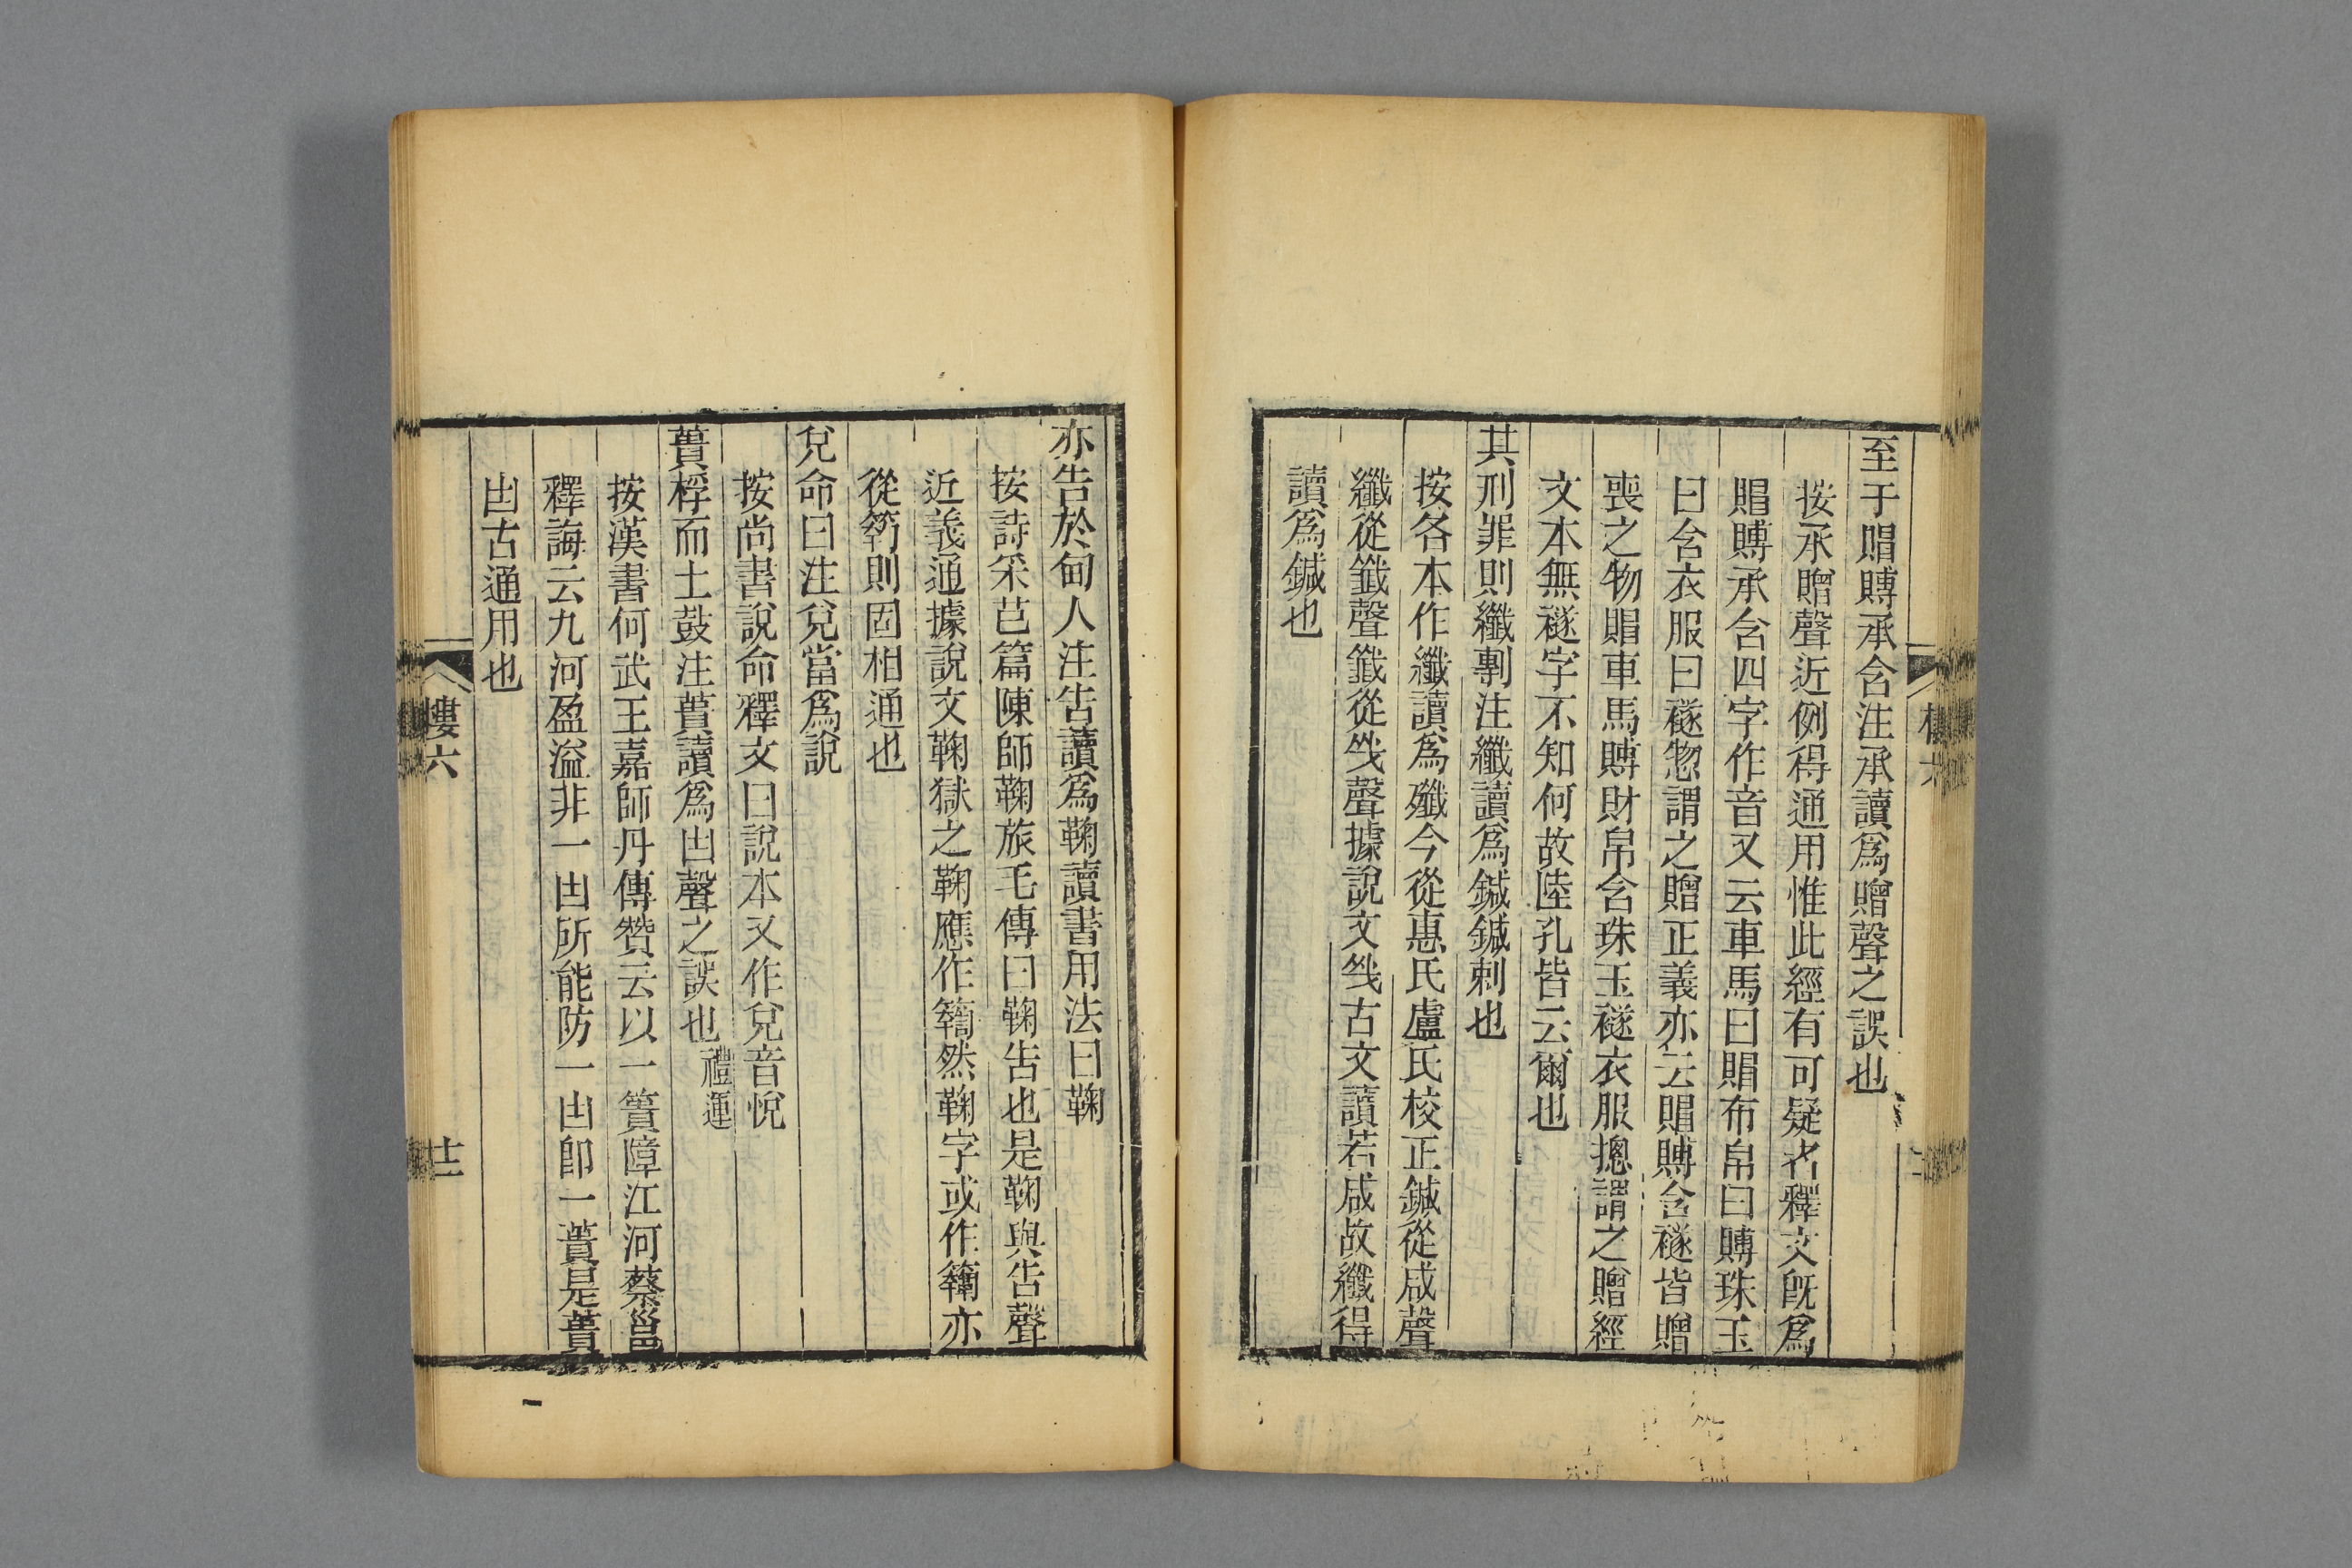 至于賵賻承含注承讀爲贈聲之誤也
按承贈聲近例得通用惟此經有可疑者釋文旣爲
賵賻承含四字作音又云車馬曰賵布帛曰賻珠玉
曰含衣服曰襚惣謂之贈正義亦云賵賻含襚皆贈
喪之物賵車馬賻財帛含珠玉襚衣服摠謂之贈經
文本無襚字不知何故陸孔皆云爾也
其刑罪則纖剸注纖讀爲鍼鍼刺也
按各本作纖讀爲殲今從惠氏盧氏校正鍼從咸聲
纖從韱聲韱從㦰聲據說文㦰古文讀若咸故纖得
讀爲鍼也
亦告於甸人注告讀爲鞠讀書用法曰鞠
按詩采芑篇陳師鞠旅毛傳曰鞠告也是鞠與告聲
近義通據說文鞠獄之鞠應作𥷚然鞠字或作䕮亦
從竻則固相通也
兌命曰注兌當爲說
按尚書說命釋文曰說本又作兌音悅
蕢桴而土鼓注蕢讀爲凷聲之誤也禮運
按漢書何武王嘉師丹傳贊云以一簣障江河蔡邕
釋誨云九河盈溢非一凷所能防一凷卽一蕢是蕢
凷古通用也
樓六
廿二